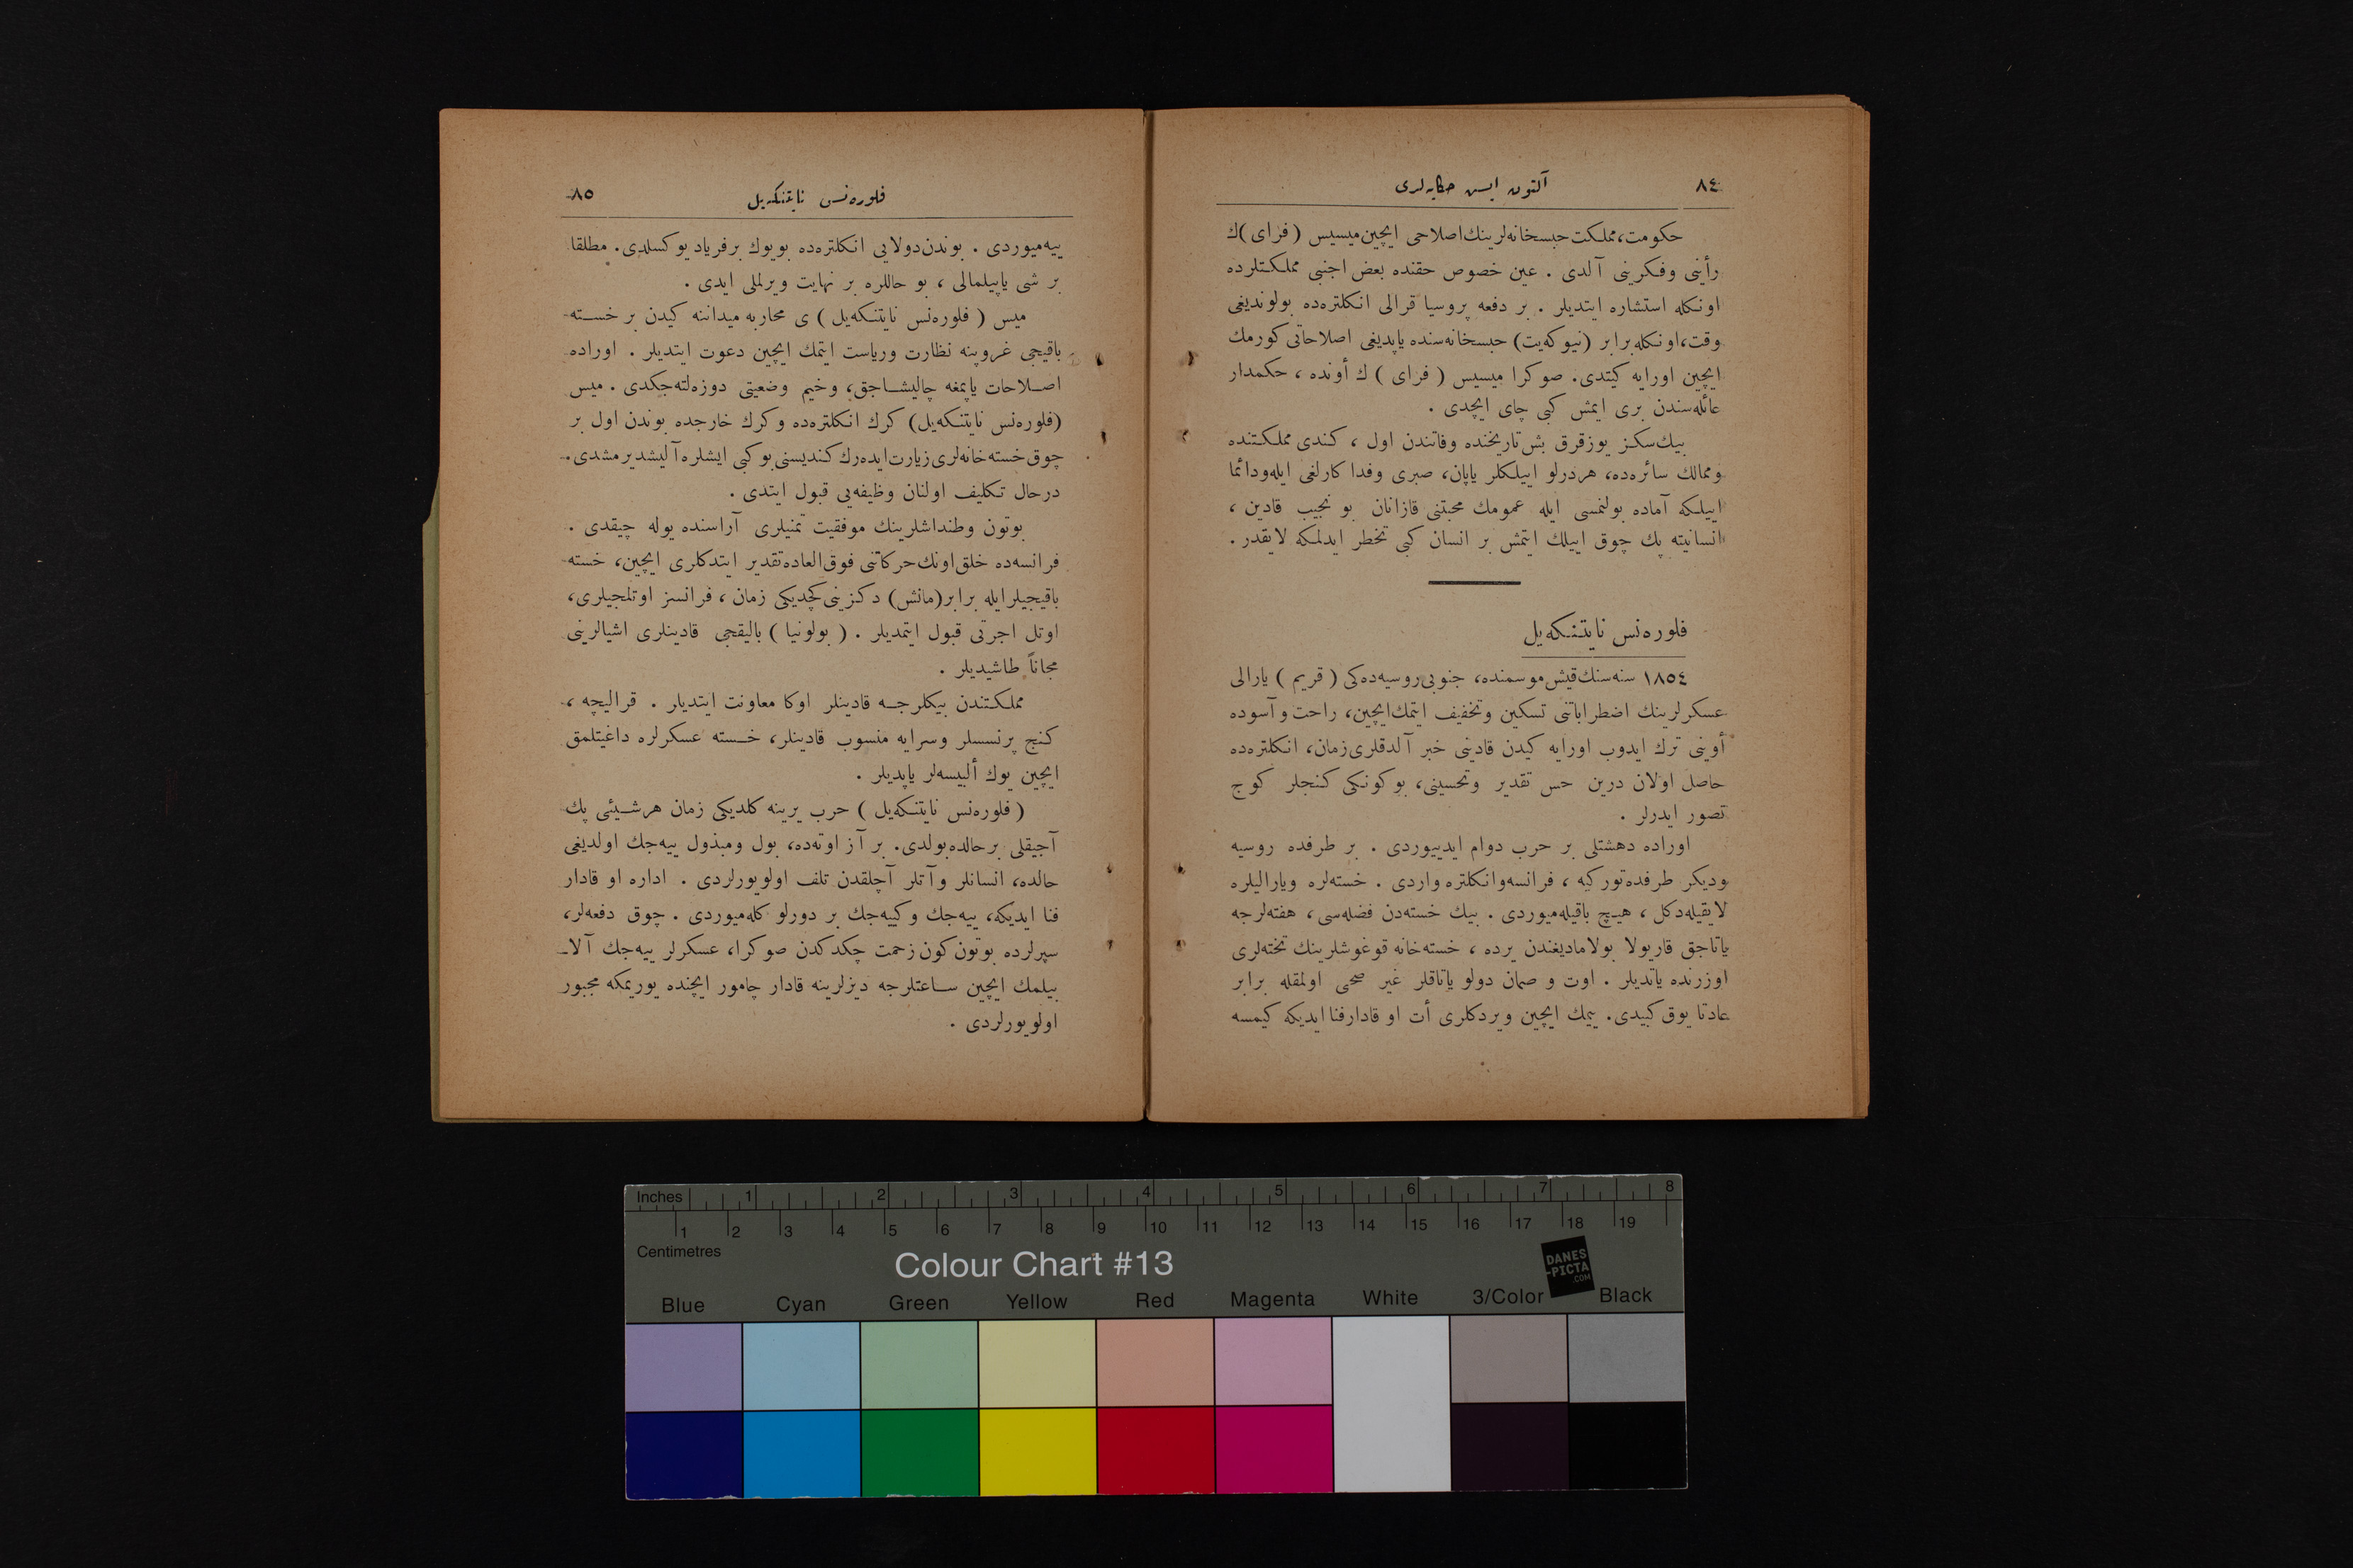 ٨٤
آلتون ایس حکایه‌لری
حکومت، مملکت حبسخانه‌لرینك اصلاحی ایچین میسیس (فرای)ك
رأینی وفکرینی آلدی . عین خصوص حقنده بعض اجنبی مملکتلرده
اونکله استشاره ایتدیلر . بر دفعه پروسیا قرالی انکلتره‌ده بولوندیغی
وقت، اونکله برابر (نیوکه‌یت) حبسخانه‌سنده یاپدیغی اصلاحاتی کورمك
ایچین اورایه کیتدی. صوکرا میسیس ( فرای ) ك أونده ، حکمدار
عائله‌سندن بری ایمش کبی چای ایچدی .
بیك سکز یوزقرق بش تاریخنده وفاتندن اول ، کندی مملکتنده
وممالك سائره‌ده، هردرلو اییلکلر یاپان، صبری وفداکارلغی ایله ودائما
اییلکه آماده بولنمسی ایله عمومك محبتنی قازانان بو نجیب قادین ،
انسانیته پك چوق اییلك ایتمش بر انسان کبی تخطر ایدلمکه لایقدر .
فلوره‌نس نایتنکه‌یل
١٨٥٤ سنه‌سنك قیش موسمنده، جنوبی روسیه‌ده‌کی ( قریم ) یارالی
عسکرلرینك اضطراباتنی تسکین وتخفیف ایتمك ایچین، راحت و آسوده
أوینی ترك ایدوب اورایه کیدن قادینی خبر آلدقلری زمان، انکلتره‌ده
حاصل اولان درین حس تقدیر وتحسینی، بوکونکی کنجلر کوج
تصور ایدرلر .
اوراده دهشتلی بر حرب دوام ایدییوردی . بر طرفده روسیه
ودیکر طرفده تورکیه ، فرانسه وانکلتره واردی . خسته‌لره ویارالیلره
لایقیله دکل ، هیچ باقیله‌میوردی . بیك خسته‌دن فضله‌سی ، هفته‌لرجه
یاتاجق قاریولا بولامادیغندن یرده ، خسته‌خانه قوغوشلرینك تخته‌لری
اوزرنده یاتدیلر . اوت و صمان دولو یاتاقلر غیر صحی اولمقله برابر
عادتا یوق کبیدی. ییمك ایچین ویردکلری أت او قادار فنا ایدیکه کیمسه
فلوره‌نس نایتنکه‌یل
٨٥
ییه‌میوردی . بوندن دولایی انکلتره‌ده بویوك برفریاد یوکسلدی. مطلقا
بر شی یاپیلمالی ، بو حاللره بر نهایت ویرلملی ایدی .
میس ( فلوره‌نس نایتنکه‌یل ) ی محاربه میداننه کیدن بر خسته
باقیجی غروپنه نظارت وریاست ایتمك ایچین دعوت ایتدیلر . اوراده
اصلاحات یاپمغه چالیشاجق، وخیم وضعیتی دوزه‌لته‌جکدی . میس
(فلوره‌نس نایتنکه‌یل) کرك انکلتره‌ده وکرك خارجده بوندن اول بر
چوق خسته‌خانه‌لری زیارت ایده‌رك کندیسنی بوکبی ایشلره آلیشدیرمشدی.
درحال تکلیف اولنان وظیفه‌یی قبول ایتدی .
بوتون وطنداشلرینك موفقیت تمنیلری آراسنده یوله چیقدی .
فرانسه‌ده خلق اونك حرکاتنی فوق‌العاده تقدیر ایتدکلری ایچین، خسته
باقیجیلرایله برابر(مانش) دکزینی کچدیکی زمان ، فرانسز اوتلجیلری،
اوتل اجرتی قبول ایتمدیلر . ( بولونیا ) بالیقجی قادینلری اشیالرینی
مجاناً طاشیدیلر .
مملکتندن بیکلرجه قادینلر اوکا معاونت ایتدیلر . قرالیچه ،
کنج پرنسسلر وسرایه منسوب قادینلر، خسته عسکرلره داغیتلمق
ایچین یوك ألبیسه‌لر یاپدیلر .
( فلوره‌نس نایتنکه‌یل ) حرب یرینه کلدیکی زمان هرشیئی پك
آجیقلی برحالده بولدی. بر آز اوته‌ده، بول ومبذول ییه‌جك اولدیغی
حالده، انسانلر وآتلر آچلقدن تلف اولویورلردی . اداره او قادار
فنا ایدیکه، ییه‌جك وکییه‌جك بر دورلو کله‌میوردی . چوق دفعه‌لر،
سپرلرده بوتون کون زحمت چکدکدن صوکرا، عسکرلر ییه‌جك آلا‌-
بیلمك ایچین ساعتلرجه دیزلرینه قادار چامور ایچنده یوریمکه مجبور
اولویورلردی .
Inches 1 2 3 4 5 6 7 8
1 2 3 4 5 6 7 8 9 10 11 12 13 14 15 16 17 18 19
Centimetres
Colour Chart #13
DANES
-PICTA
.COM
Blue Cyan Green Yellow Red Magenta White 3/Color Black